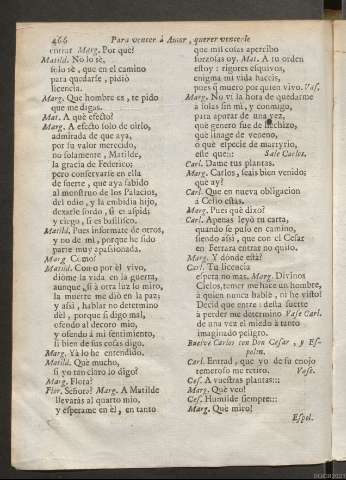 466 Para vencer à Amor, querer vencerle
entrar. Marg. Por què?
Matild. No lo sè,
solo sè, que en el camino
para quedarse, pidiò
licencia.
Marg. Que hombre es, te pido
que me digas.
Mat. A què efecto?
Marg. A efecto solo de oirlo,
admirada de que aya,
por su valor merecido,
no solamente, Matilde,
la gracia de Federico;
pero conservarse en ella
de suerte, que aya sabido
al monstruo de los Palacios,
del odio, y la embidia hijo,
dexarle sordo, si es aspid,
y ciego, si es basilisco.
Matild. Pues informate de otros,
y no de mi, porque he sido
parte muy apassionada.
Marg. Como?
Matild. Como por èl vivo,
diòme la vida en la guerra,
aunque, si à otra luz lo miro,
la muerte me diò en la paz;
y assi, hablar no determino
dèl, porque si digo mal,
ofendo al decoro mio,
y ofendo à mi sentimiento,
si bien de sus cosas digo.
Marg. Yà lo he entendido.
Matild. Què mucho,
si yo tan claro lo digo?
Marg. Flora?
Flor. Señora? Marg. A Matilde
llevaràs al quarto mio,
y esperame en èl, en tanto
que mil cosas apercibo
forzosas oy. Mat. A tu orden
estoy: rigores esquivos,
enigma mi vida haceis,
pues si muero por quien vivo. Vas.
Marg. No vi la hora de quedarme
à solas sin mi, y conmigo,
para apurar de una vez,
què genero fue de hechizo,
què linage de veneno,
ò què especie de martyrio,
este que::: Sale Carlos.
Carl. Dame tus plantas.
Marg. Carlos, seais bien venido;
què ay?
Carl. Que en nueva obligacion
à Celio estàs.
Marg. Pues què dixo?
Carl. Apenas leyò tu carta,
quando se puso en camino,
siendo assi, que con el Cesar
en Ferrara entrar no quiso.
Marg. Y donde està?
Carl. Tu licencia
espera no mas. Marg. Divinos
Cielos, temer me hace un hombre,
à quien nunca hablè, ni he visto!
Decid que entre: desta suerte
à perder me determino Vase Carl.
de una vez el miedo à tanto
imaginado peligro.
Buelve Carlos con Don Cesar, y Es-
polin.
Carl. Entrad, que yo de su enojo
temeroso me retiro. Vase.
Ces. A vuestras plantas:::
Marg. Què veo!
Ces. Humilde siempre:::
Marg. Què miro!
Espol.